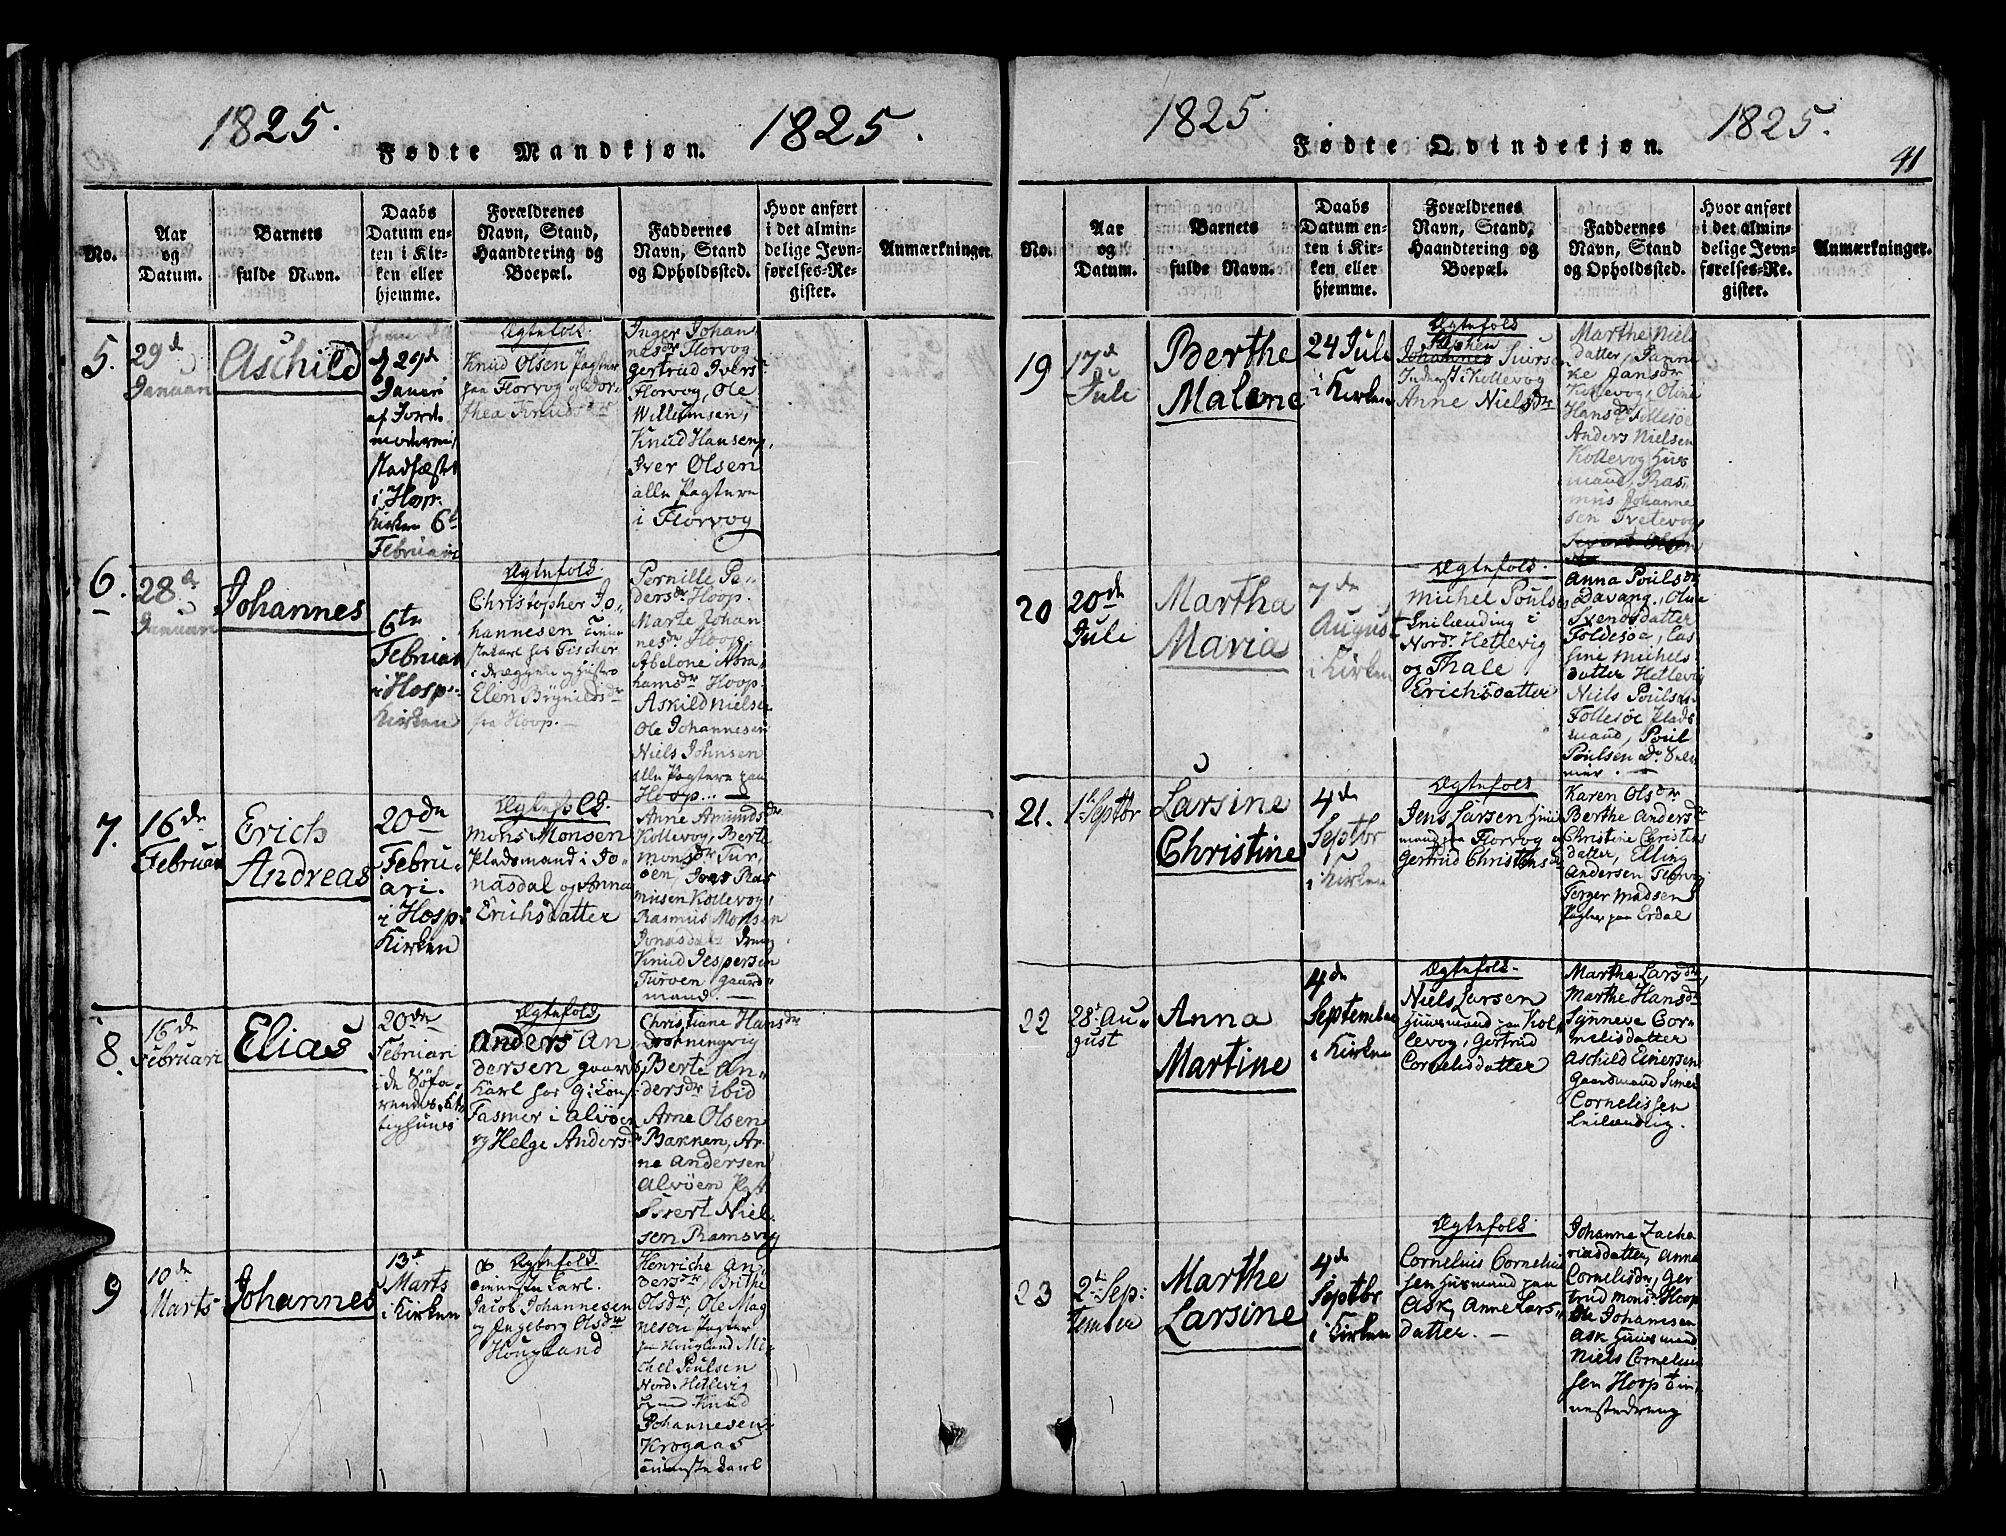 1825.
Fødte Mandkjøn.
1825.
No.
Aar
og
Datum.
Barnets
fulde Navn.
Daabs
Datum en-
ten i Kir-
ken eller
hjemme.
Forældrenes
Navn, Stand,
Haandtering og
Boepæl.
Faddernes
Navn, Stand
og Opholdssted.
Hvor anført
i det almin-
delige Jevn-
førelses-Re-
gister.
Anmærkninger.
5.
29de
Januari
Aschild
d 29d
Januri
af Jord-
moderen,
stadfæst
i Hosp.
Kirken 6t
Februari
Ægtefolk.
Knud Olsen Pagter
paa Florvog og Dor-
thea Knudsdr
Inger Johan-
nesdr Florvog
Gertrud Ivers
Florvog, Ole
Willumsen,
Knud Hansen,
Iver Olsen
alle Pagtere
i Florvog
6.
28de
Januari
Johannes
6te
Februari
i Hosp.
Kirken
Ægtefolk.
Christopher Jo-
hannesen Tiene-
stekarl hos Fischer
i Dræggen og Hustro
Elen Brynildsdr
paa Hoop.
Pernille Pe-
dersdr Hoop.
Marte Johan-
nesdr Hoop,
Abelone Abra-
hamsdr Hoop.
Askild Nielsen
Ole Johannesen
Niels Johnsen
alle Pagtere paa
Hoop.
7.
16de
Februari
Erich
Andreas
20de
Febru-
ari.
i Hosp:
Kirken
Ægtefolk.
Mons Monsen
Pladsmand i Jo-
nasdal og Anna
Erichsdatter
Anne Amundsdr
Kollevog, Berte
Monsdr Tur-
øen, Jens Ras
musen Kollevog,
Rasmus Monsen
Jonasdal dreng
Knud Jespersen
Turøen gaard-
mand.
8.
15de
Februari
Elias
20de
Februari
i de Søfa-
rendes Fat-
tighuus
Ægtefolk
Anders An
dersen gaards
Karl hos
Fasmer i Alvøen
og Helge Andersd
Christiane Hansdr
Dronningvig
Berte An-
dersdr ibid
Arne Olsen
Bakken, Ar-
ne Andersen
Alvøen
Sivert Niel
sen Ramsvig
9
10de
Marts
Johannes
13d
Marts
i Kirken
Ægtefolk.
Tienestekarl.
Jacob Johannesen
og Ingeborg Olsdr
Hougland
Henriche An
dersdr Brithe
Olsdr, Ole Mag
nesen Pagter
paa Hougland Mi-
chel Poulsen
Nordr Hetlevig
Knud
Johannesen
Krogaas
Tienestekarl
1825.
Fødte Qvindekjøn.
1825.
41
No.
Aar
og
Datum.
Barnets
fulde Navn.
Daabs
Datum en-
ten i Kir-
ken eller
hjemme.
Forældrenes
Navn, Stand,
Haandtering og
Boepæl.
Faddernes
Navn, Stand
og Opholdssted.
Hvor anført
i det almin-
delige Jevn-
førelses-Re-
gister.
Anmærkninger.
19
17d
Juli
Berthe
Malene
24 Juli
i Kirken
Ægtefolk
Stephen
Johannes Siurse
Inderst i Kollevog
Anne Nielsdr
Marthe Niels
datter, Janni
ke Jansdr
Kollevog, Oline
Hansdr Follesøe
Anders Nielsen
Kollevog Huus
mand, Ras-
mus Johanne
sen Tvetevog
20
20de
Juli
Martha
Maria
7de
August
i Kirken
Ægtefolk.
Michel Poulsen
Leilænding i
Nordr Hetlevig
og Thale
Erichsdatter
Anna Poulsdr
Davang, Oline
Svendsdatter
Foldesøe, Las
sine Michels
datter Hetlevig
Niels Poulsen
Follesøe Plads
mand, Poul
Poulsen
21.
1t Septbr
Larsine
Christine
4de
Septbr
i Kirken
Ægtefolk
Jens Larsen Huus
mand paa Florvog
Gertrud Christensd
Karen Olsdr
Berthe Andersdr
Christine Christens
datter, Elling
Andersen Florvog
Torger Madsen
Pagter paa Erdal
22
28de Au-
gust
Anna
Martine
4de
September
i Kirken
Ægtefolk.
Niels Larsen
Huusmand paa Kol-
levog, Gertrud
Cornelisdatter
Marthe Larsdr,
Marthe Hansdr
Synneve Cor-
nelisdatter
Aschild Einersen
Gaardmand Simer
Cornelissen
Leilænding.
23
2de Sep-
tember
Marthe
Larsine
4de
Septbr
i Kirken
Ægtefolk
Cornelius Cornelius
sen Huusmand paa
Ask, Anne Lars-
datter.
Johanne Zacha
riasdatter, Anna
Cornelisdr, Ger
trud Monsdr Hoop
Ole Johannesen
Ask Huusmand
Niels Cornelius
sen Hoop Tie-
nestedreng